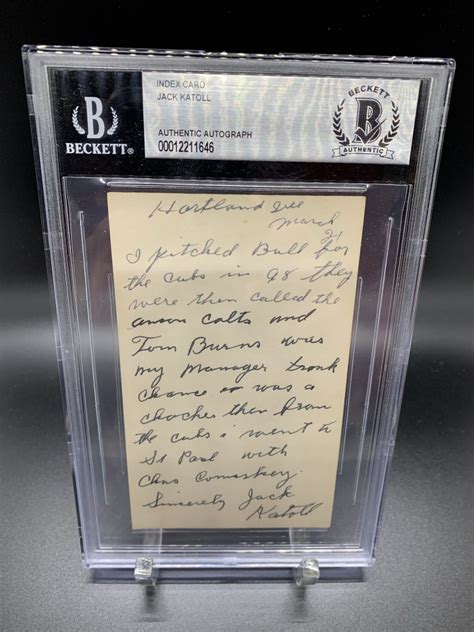 INDEX CARD
JACK KATOLL
AUTHENTIC AUTOGRAPH
00012211646
B
BECKETT®
BECKETT
B
AUTHENTIC
Hartland Ill
March
21
I pitched Ball for
the cubs in 98 they
were then called the
anson colts and
Tom Burns was
my Manager Frank
Chance was a
the cubs i went to
St Paul with
Chas Comiskey.
Sincerely Jack
Katoll